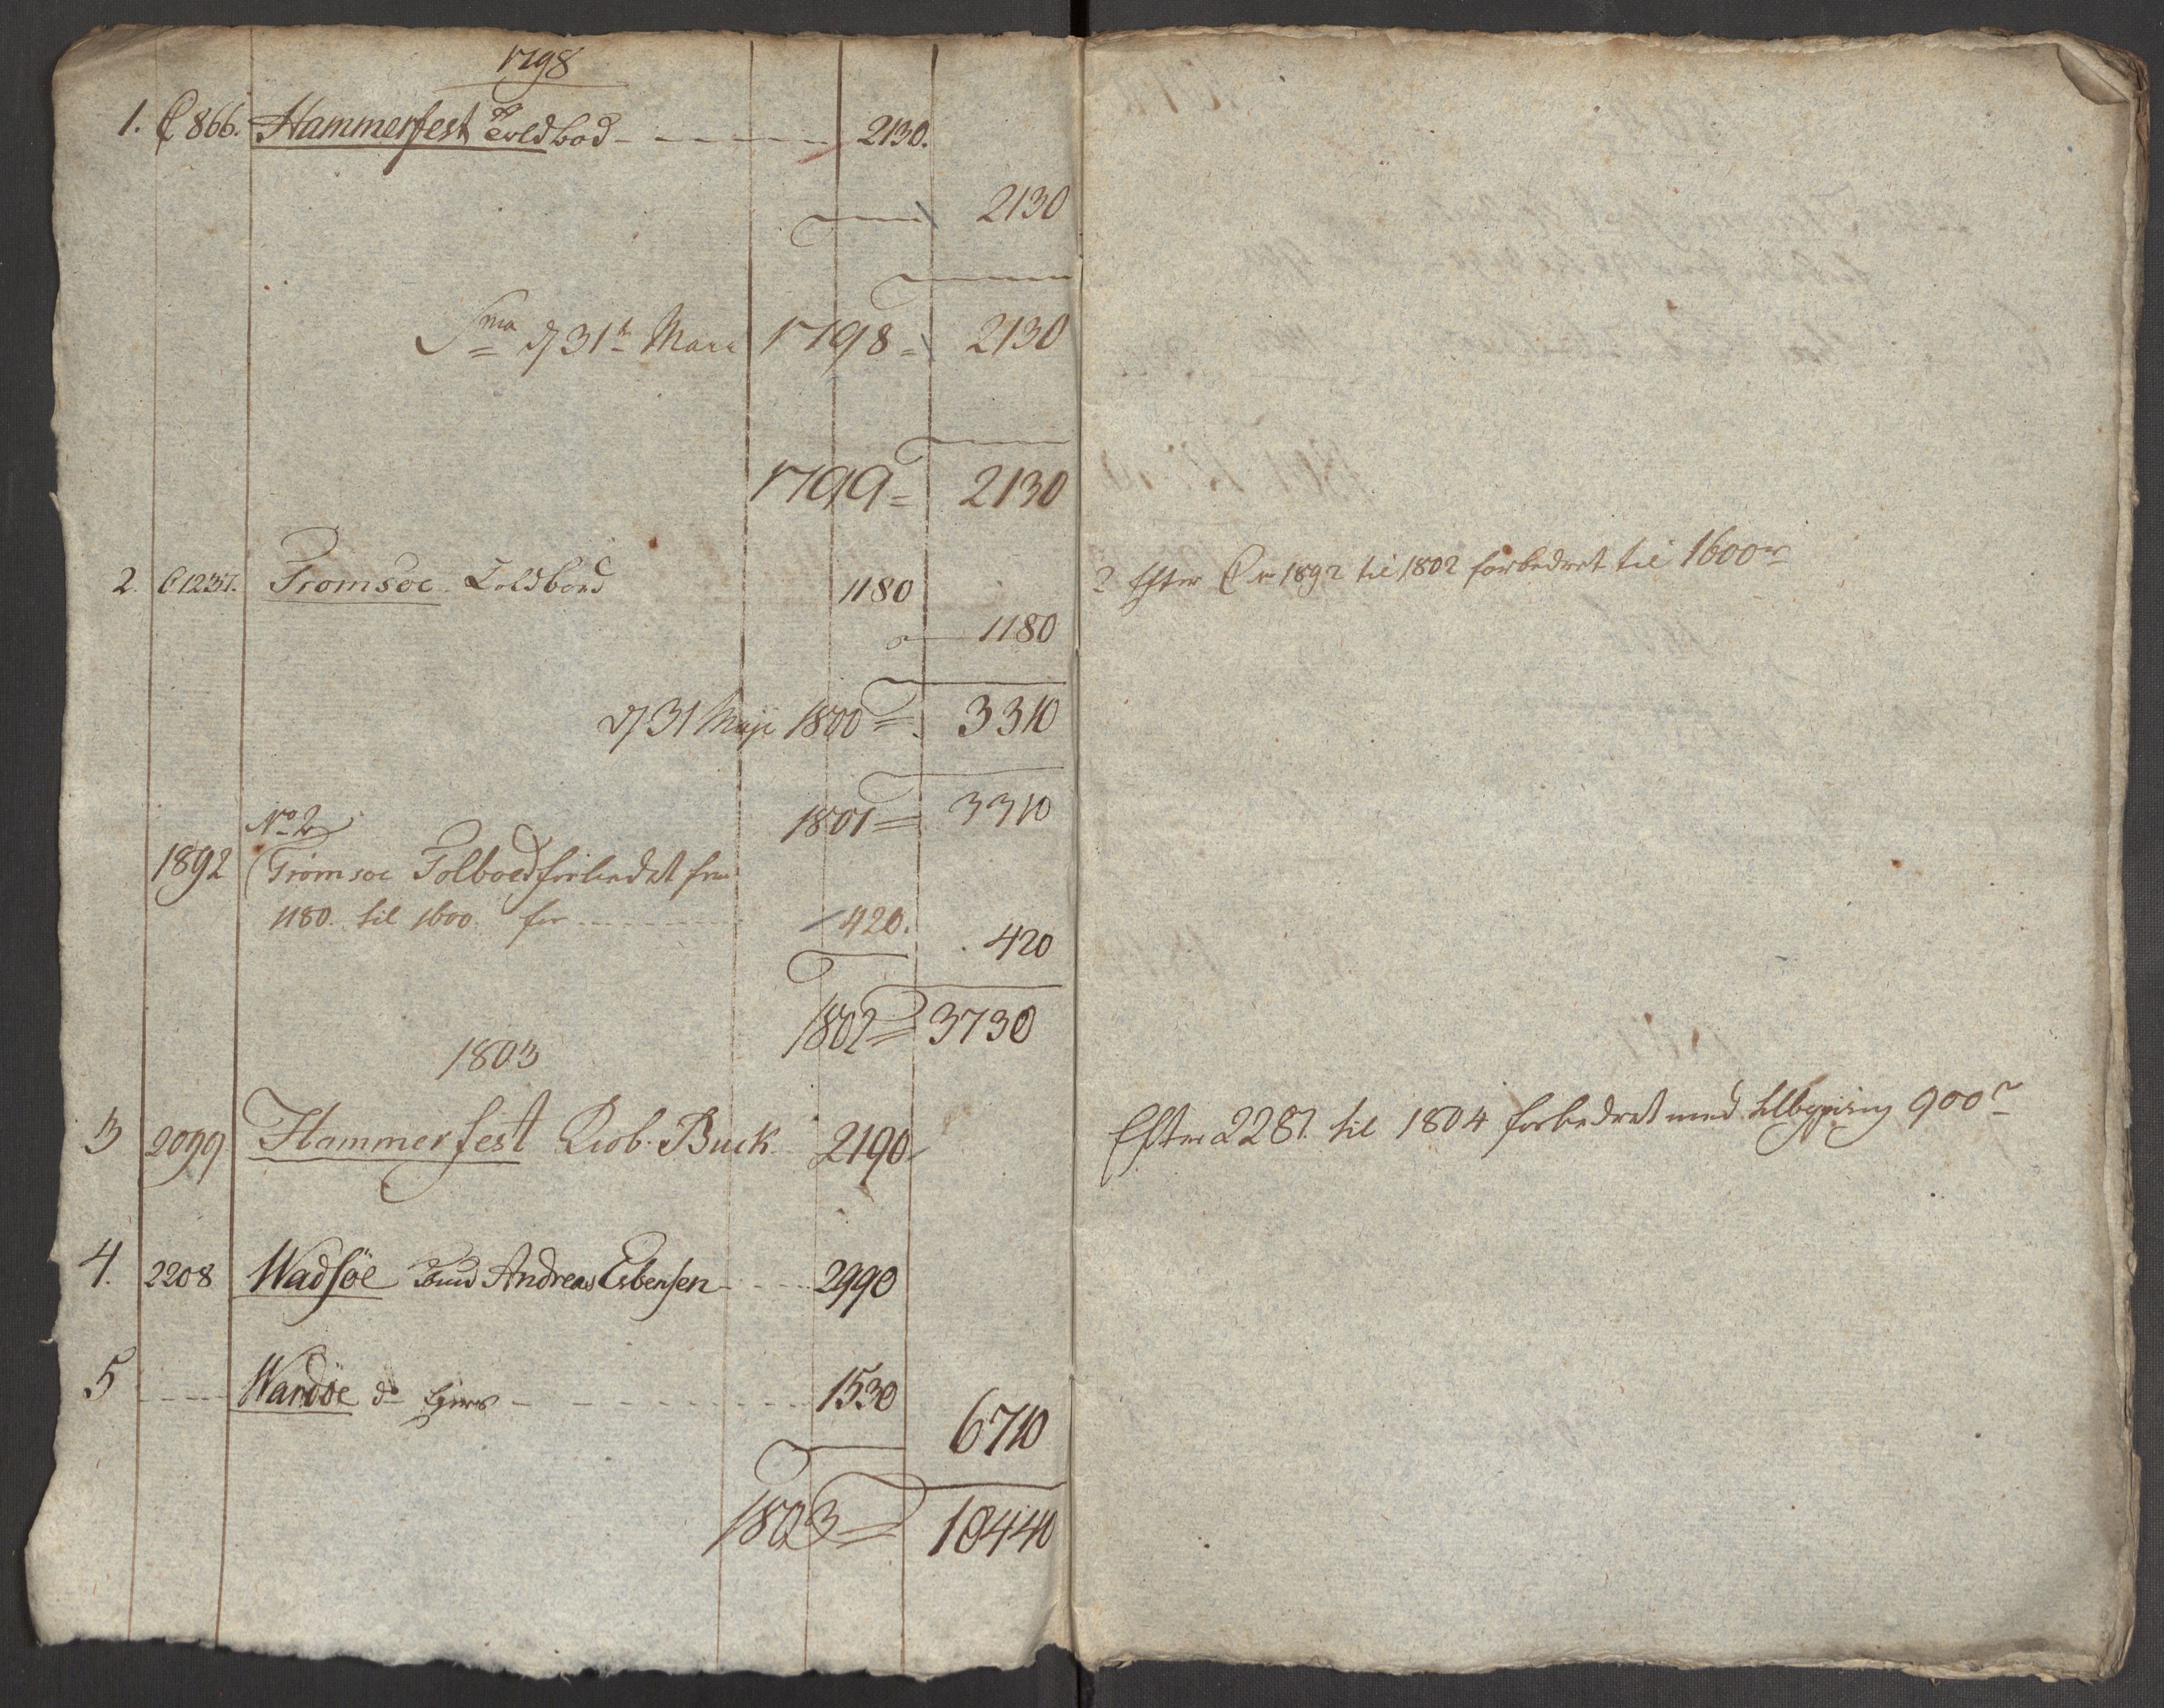 1798
1. C 866. Hammerfest Toldbod - - - - - 2130.
2130
Sma d 31t Marc 1798 = 2130
1799 = 2130
2. C 1237. Tromsöe Toldbod 1180
1180
d 31 Maji 1800 = 3310
1801 = 3310
No 2
1892 Tromsöe Tolboed forbedret fra
1180 til 1600 for - - - 420.
420
1802 = 3730
1803
3 2099 Hammerfest Kiøb. Buck 2190
4. 2208 Wadsöe Andreas Esbensen - - - 2990
5 - - - Wardöe do - - - - - - 1530
6710
1803 = 10440
2 Efter C 1892 til 1802 forbedret til 1600
Efter 2281. til 1804 forbedret med tilbygning 900